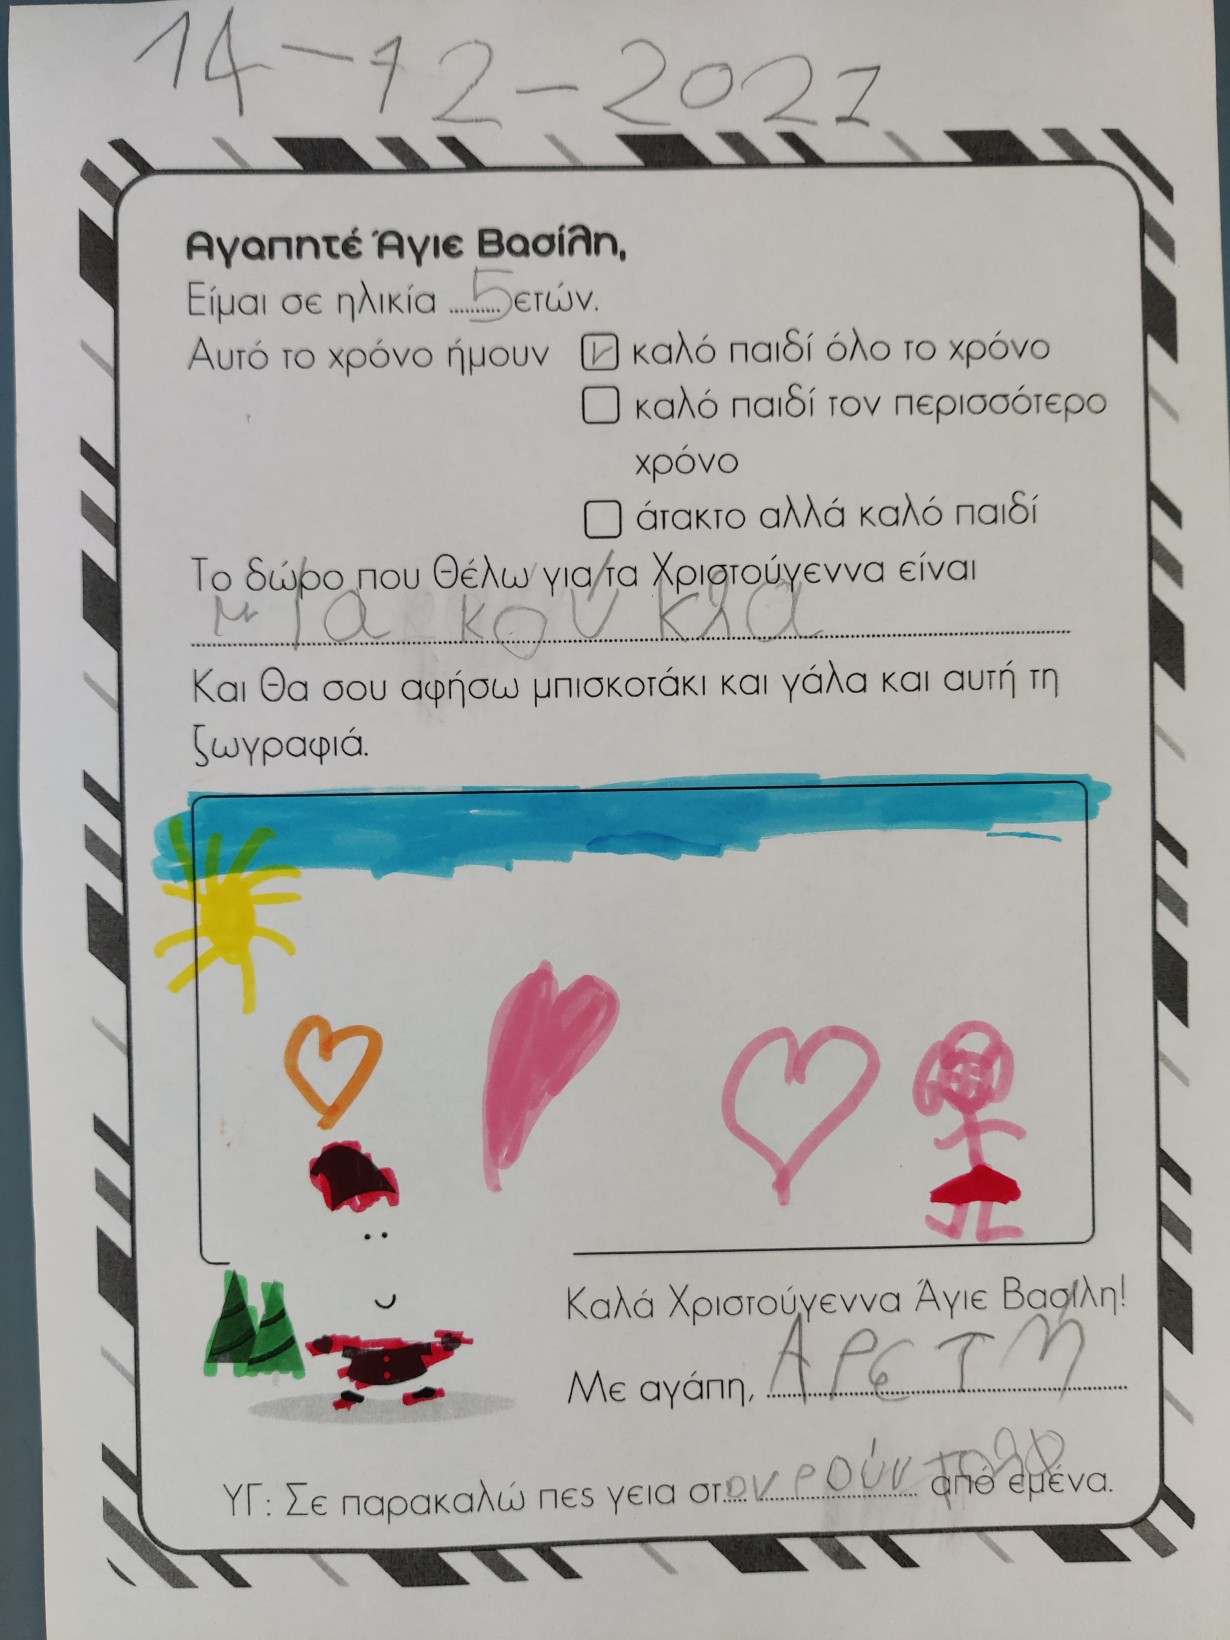 14-12-2021
Αγαπητέ Άγιε Βασίλη,
Είμαι σε ηλικία 5 ετών.
Αυτό το χρόνο ήμουν καλό παιδί όλο το χρόνο
καλό παιδί τον περισσότερο
χρόνο
άτακτο αλλά καλό παιδί
Το δώρο που θέλω για τα Χριστούγεννα είναι
μια κουκλα
Και θα σου αφήσω μπισκοτάκι και γάλα και αυτή τη
ζωγραφιά.
Καλά Χριστούγεννα Άγιε Βασίλη!
Με αγάπη, ΑΡΕΤΗ
ΥΓ: Σε παρακαλώ πες γεια στον ρούντολφ από εμένα.